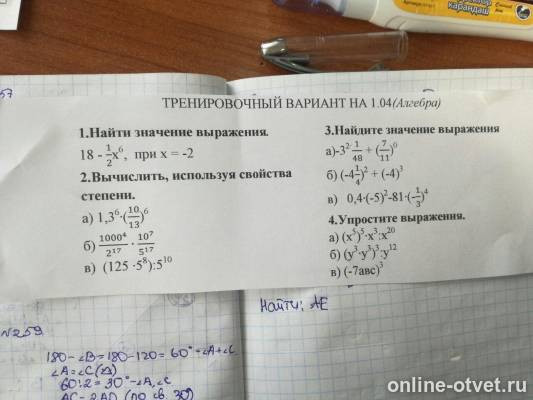 карандаш
57
ТРЕНИРОВОЧНЫЙ ВАРИАНТ НА 1.04(Алгебра)
1.Найти значение выражения.
18 - \frac{1}{2}x⁶, при х = -2
2.Вычислить, используя свойства
степени.
а) 1,3⁶·(\frac{10}{13})⁶
б) \frac{1000⁴}{2¹⁷} · \frac{10⁷}{5¹⁷}
в) (125 ·5⁸):5¹⁰
3.Найдите значение выражения
а)-3²·\frac{1}{48} + (\frac{7}{11})⁰
б) (-4\frac{1}{4})² + (-4)³
в) 0,4·(-5)²-81·(-\frac{1}{3})⁴
4.Упростите выражения.
а) (x⁵)⁵·x³:x²⁰
б) (y³·y⁵)³:y¹²
в) (-7авс)³
Найти: AE
№259
180-∠B=180-120=60°-∠A+∠C
∠A=∠C
60:2=30°-∠A,∠C
online-otvet.ru